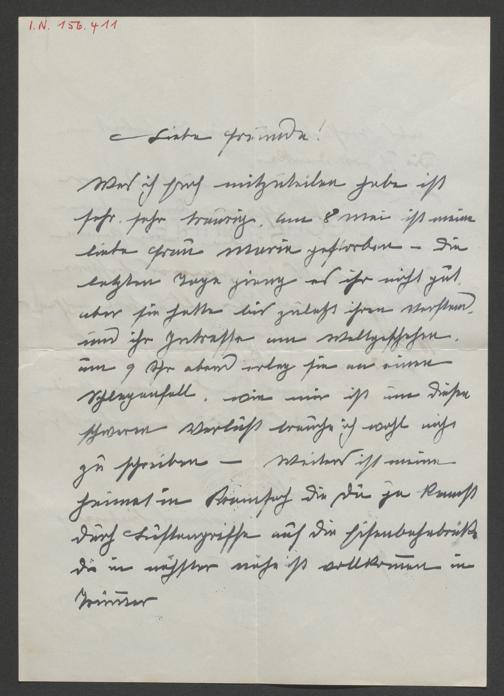 I.N. 156.411
Liebe Freunde!
Was ich Euch mitzuteilen habe ist
sehr, sehr traurig. Am 8 Mai ist meine
liebe Frau Marie gestorben – die
letzten Tage gieng es ihr nicht gut,
aber sie hatte bis zuletzt ihren Verstand,
und ihr Intresse am Weltgeschehen.
um 9 Uhr abend erlag sie an einem
Schlaganfall. wie mir ist um diesen
schweren Verlust brauche ich wohl nicht
zu schreiben – Weiters ist meine
Heimat in die Du ja kennst
durch Luftangriffe auf die Eisenbahnbrücke
die in nächster nähe ist vollkommen in
Trümmer